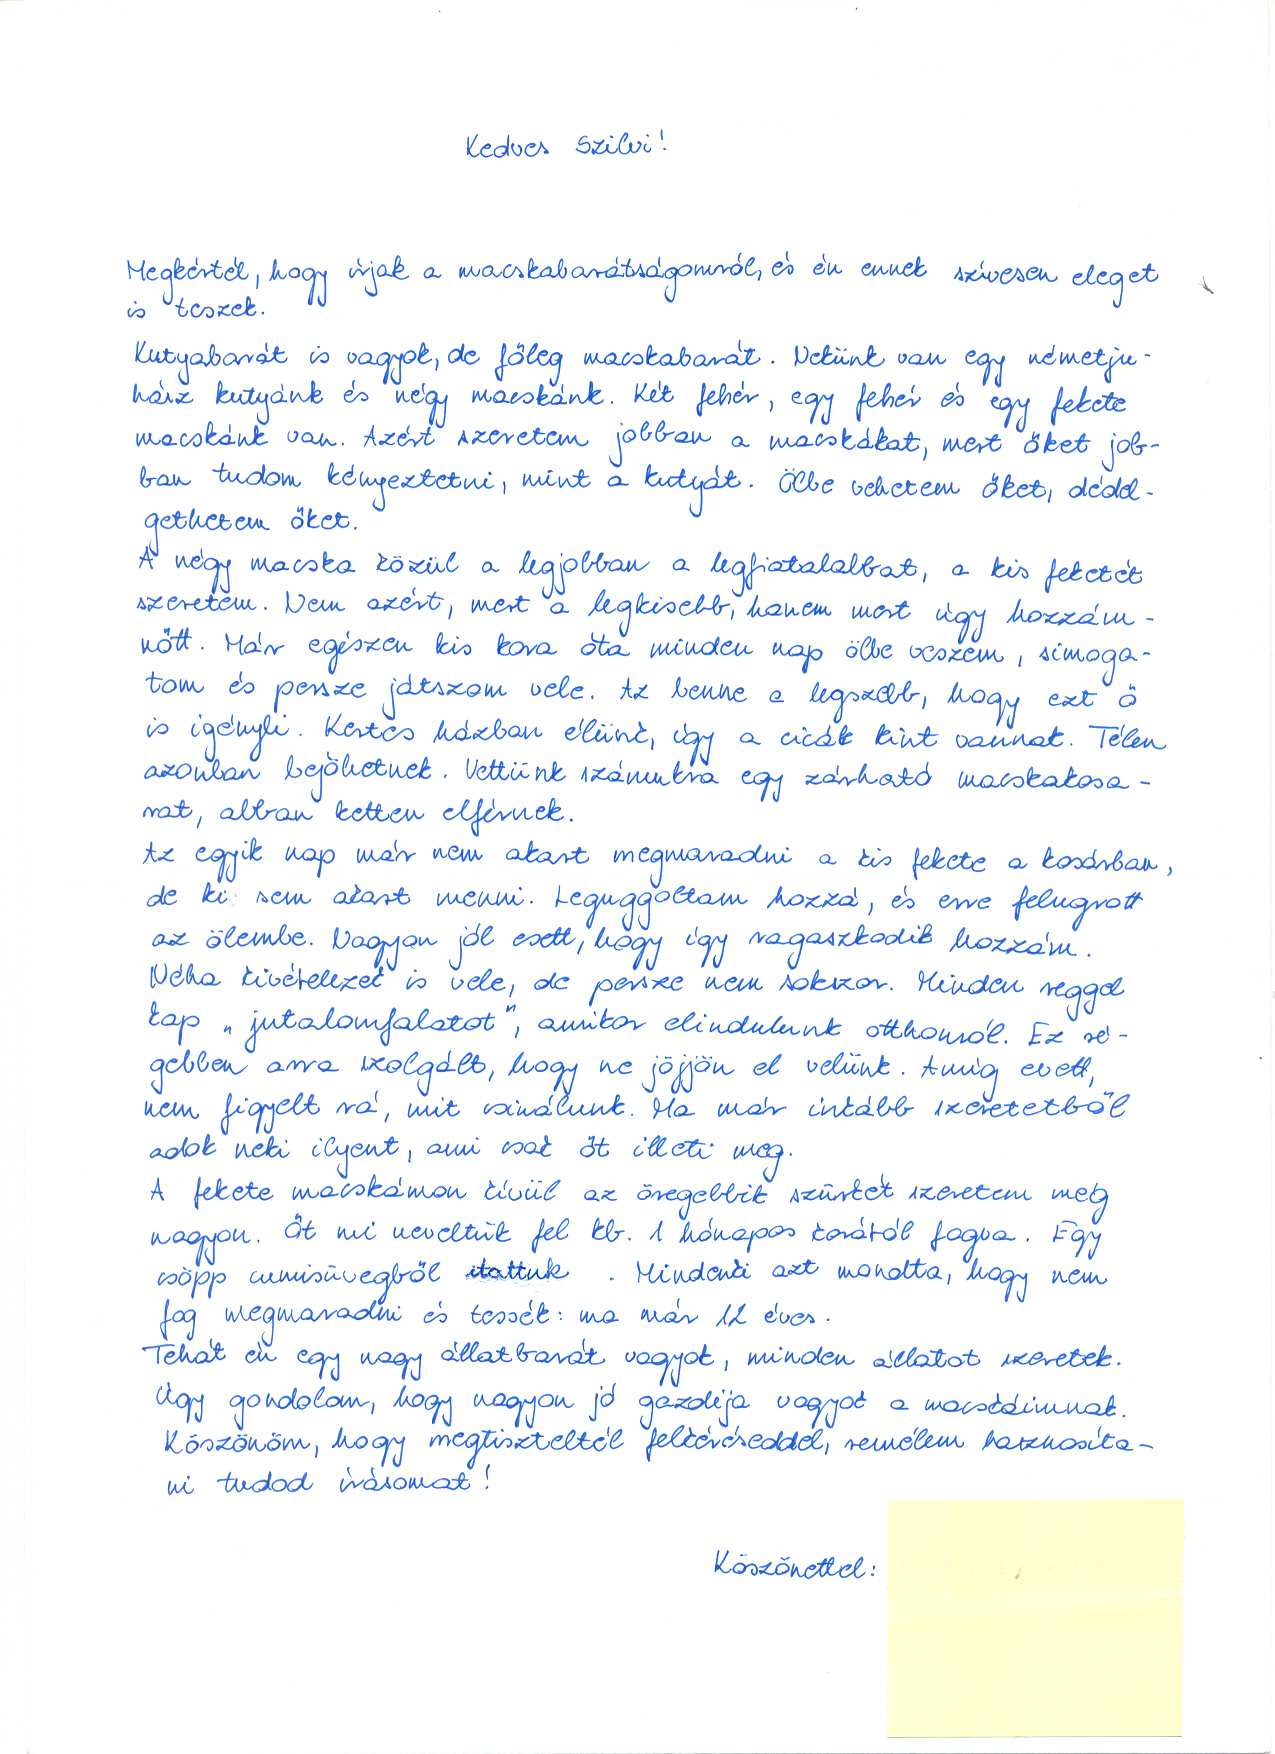 Kedves Szilvi!
Megkértél, hogy írjak a macskabarátságomról, és én ennek szívesen eleget
is teszek.
Kutyabarát is vagyok, de főleg macskabarát. Nekünk van egy németju-
hász kutyánk és négy macskánk. Két fehér, egy fehér és egy fekete
macskánk van. Azért szeretem jobban a macskákat, mert őket job-
ban tudom kényeztetni, mint a kutyát. Ölbe vehetem őket, dédel-
gethetem őket.
A négy macska közül a legjobban a legfiatalabbat, a kis feketét
szeretem. Nem azért, mert a legkisebb, hanem mert úgy hozzám-
nőtt. Már egészen kis kora óta minden nap ölbe veszem, simoga-
tom és persze játszom vele. Az benne a legszebb, hogy ezt ő
is igényli. Kertes házban élünk, így a cicák kint vannak. Télen
azonban bejöhetnek. Vettünk számukra egy zárható macskakosa-
rat, abban ketten elférnek.
Az egyik nap már nem akart megmaradni a kis fekete a kosárban,
de ki sem akart menni. Leguggoltam hozzá, és erre felugrott
az ölembe. Nagyon jól esett, hogy így ragaszkodik hozzám.
Néha kivételezek is vele, de persze nem sokszor. Minden reggel
kap „jutalomfalatot", amikor elindulunk otthonról. Ez ré-
gebben arra szolgált, hogy ne jöjjön el velünk. Amíg evett,
nem figyelt rá, mit csinálunk. Ma már inkább szeretetből
adok neki ilyent, ami csak őt illeti meg.
A fekete macskámon kívül az öregebbik szürkét szeretem még
nagyon. Őt mi neveltük fel kb. 1 hónapos korától fogva. Egy
csöpp cumisüvegből itattuk . Mindenki azt mondta, hogy nem
fog megmaradni és tessék: ma már 12 éves.
Tehát én egy nagy állatbarát vagyok, minden állatot szeretek.
Úgy gondolom, hogy nagyon jó gazdija vagyok a macskáimnak.
Köszönöm, hogy megtiszteltél felkéréseddel, remélem hasznosíta-
ni tudod írásomat!
Köszönettel: